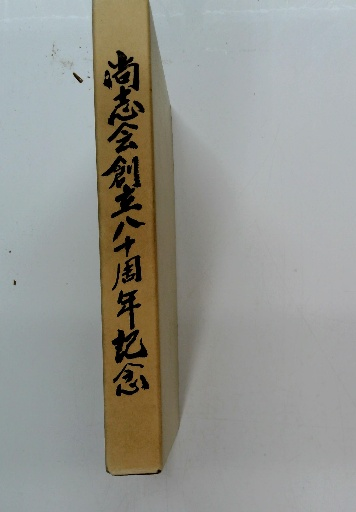 尚志会創立八十周年記念